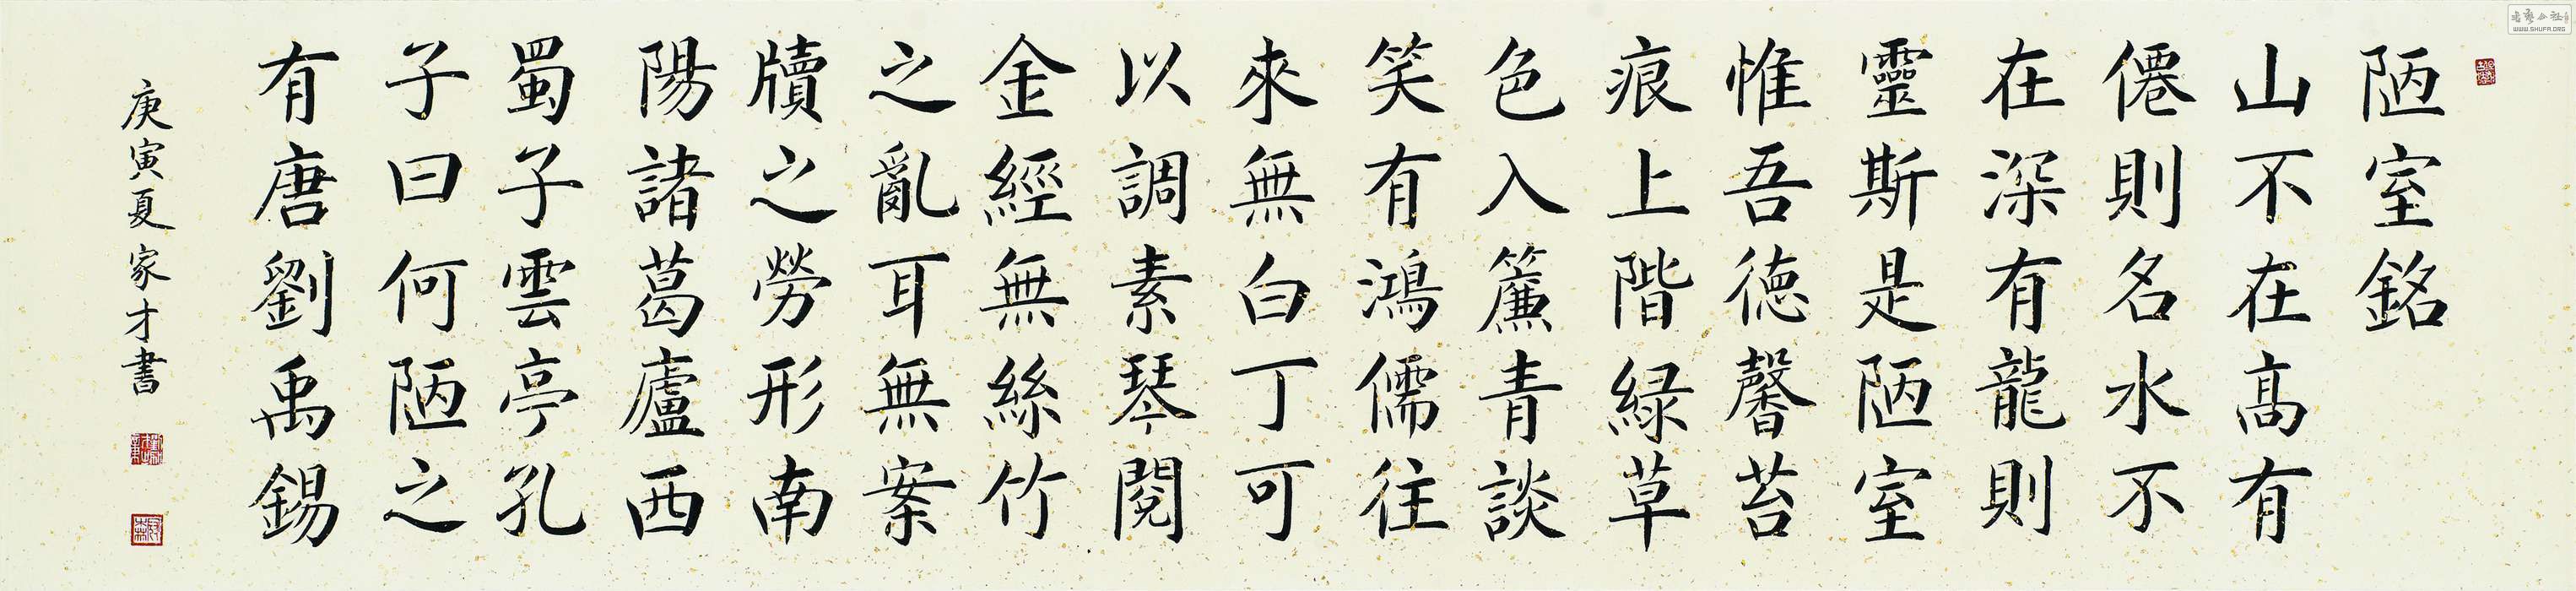 陋室銘
山不在高有
僊則名水不
在深有龍則
靈斯是陋室
惟吾德馨苔
痕上階緑草
色入簾青談
笑有鴻儒往
來無白丁可
以調素琴閱
金經無絲竹
之亂耳無案
牘之勞形南
陽諸葛廬西
蜀子雲亭孔
子曰何陋之
有唐劉禹錫
庚寅夏家才書
WWW.SHUFA.ORG